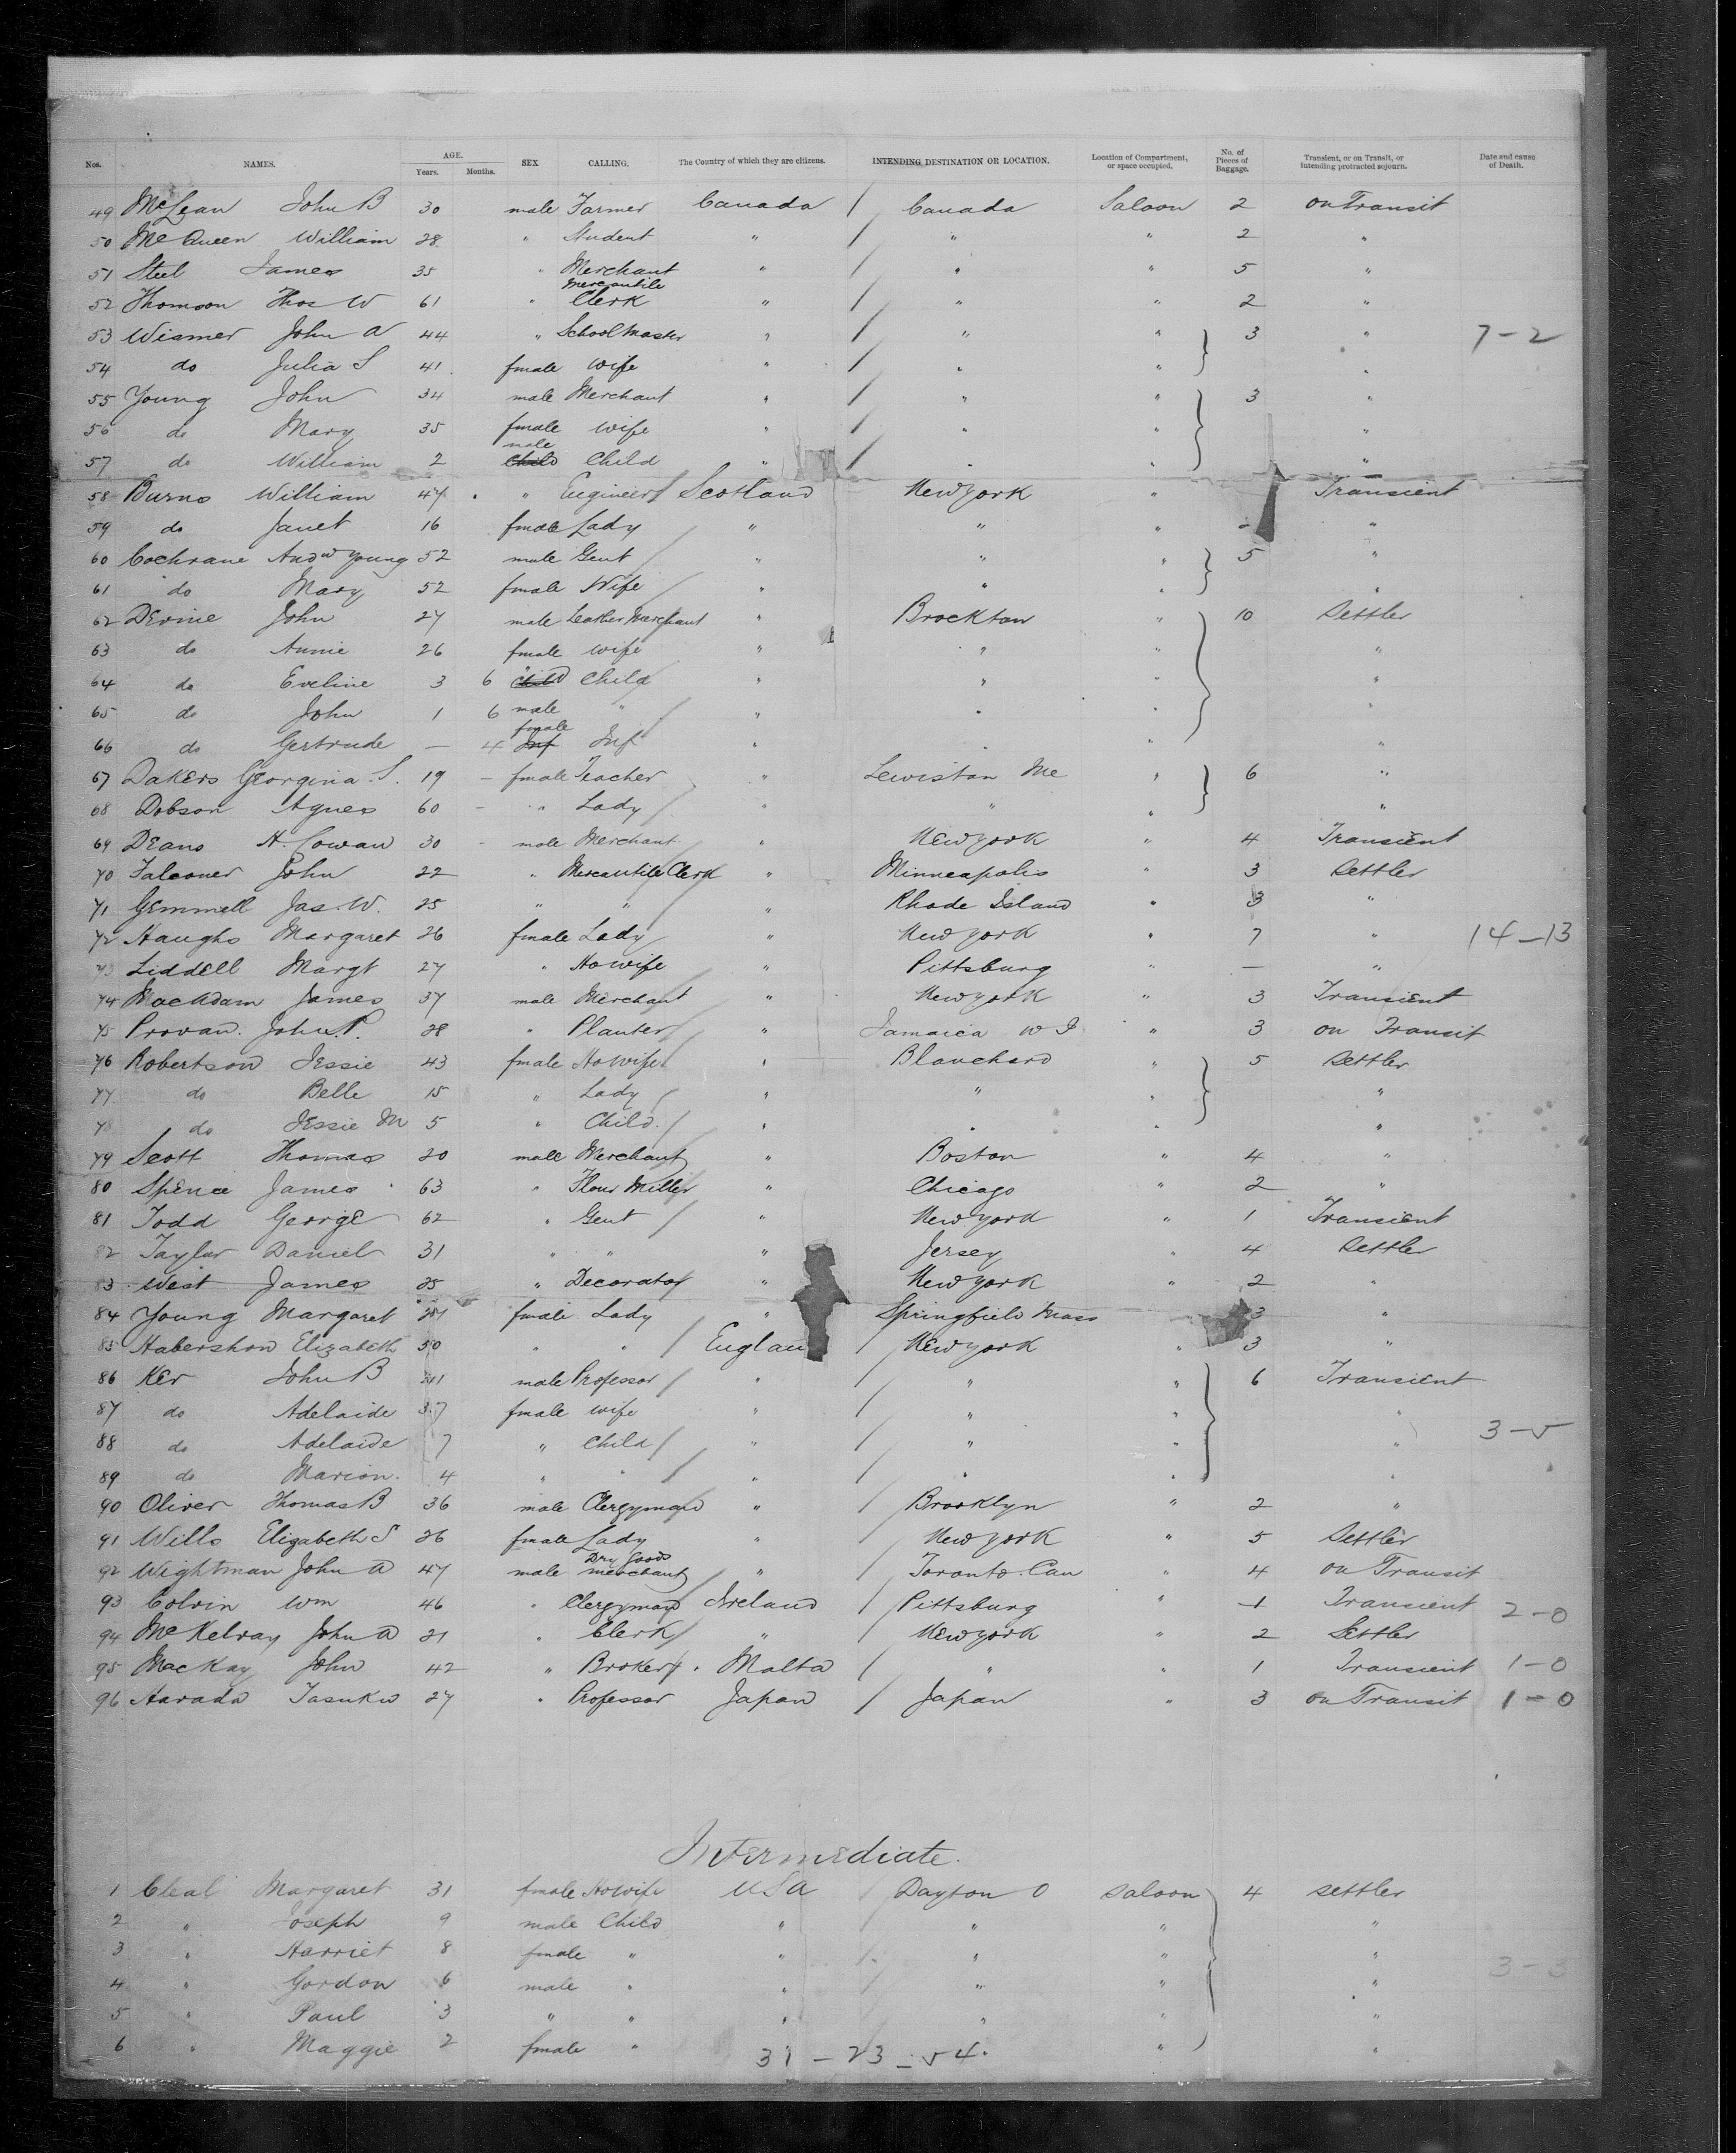 Nos. NAMES. AGE. Years. Months. SEX CALLING. The Country of which they are citizens. INTENDING DESTINATION OR LOCATION. Location of Compartment, or space occupied. No. of Pieces of Baggage. Transient, or on Transit, or intending protracted sojourn. Date and cause of Death.
49 McLean John B 30 male Farmer Canada / Canada Saloon 2 on Transit
50 McQueen William 28 " Student " / " " 2 "
51 Steel James 35 " Merchant " / " " 5 "
52 Thomson Thos W 61 " Mercantile Clerk " / " " 2 "
53 Wismer John A 44 " School Master " / " " 3 " 7-2
54 do Julia S 41 female Wife " / " " "
55 Young John 34 male Merchant " / " " 3 "
56 do Mary 35 female wife " / " " "
57 do William 2 male Child " / " " "
58 Burns William 47 " Engineer Scotland New York " Transient
59 do Janet 16 female Lady " " " "
60 Cochrane Andw Young 52 male Gent " " " 5 "
61 do Mary 52 female Wife " " " "
62 Devine John 27 male Leather Merchant " Brockton " 10 Settler
63 do Annie 26 female wife " " " "
64 do Eveline 3 6 " Child " " " "
65 do John 1 6 male " " " " "
66 do Gertrude — 4 female Inf " " " "
67 Dakers Georgina S. 19 — female Teacher " Lewiston Me " 6 "
68 Dobson Agnes 60 — " Lady " " " "
69 Deans A. Cowan 30 - male Merchant " New York " 4 Transient
70 Falconer John 22 " Mercantile Clerk " Minneapolis " 3 Settler
71 Gemmell Jas. W. 25 " " " Rhode Island " 3 "
72 Haughs Margaret 26 female Lady " New York " 7 " 14-13
73 Liddell Margt 27 " Howife " Pittsburg " — "
74 MacAdam James 37 male Merchant " New York " 3 Transient
75 Provan. John P. 28 " Planter " Jamaica W I " 3 on Transit
76 Robertson Jessie 43 female Howife " Blanchard " 5 Settler
77 do Belle 15 " Lady " " " "
78 do Jessie M 5 " Child. " " " "
79 Scott Thomas 20 male Merchant " Boston " 4 "
80 Spence James 63 " Flour Miller " Chicago " 2 "
81 Todd George 62 " Gent " New York " 1 Transient
82 Taylor Daniel 31 " " " Jersey " 4 Settler
83 West James 25 " Decorator " New York " 2 "
84 Young Margaret female Lady " Springfield Mass 3 "
85 Habershon Elizabeth 50 " " Englan / New York " 3 "
86 Ker John B male Professor " / " " 6 Transient
87 do Adelaide 37 female wife " / " " "
88 do Adelaide 7 " Child " / " " " 3-5
89 do Marion. 4 " " " / " " "
90 Oliver Thomas B 36 male Clergyman " / Brooklyn " 2 "
91 Wills Elizabeth S 26 female Lady " / New York " 5 Settler
92 Wightman John A 47 male Dry Goods merchant " / Toronto. Can " 4 on Transit
93 Colvin Wm 46 " Clergyman Ireland / Pittsburg " 1 Transient 2-0
94 McKelvay John A 21 " Clerk " / New York " 2 Settler
95 MacKay John 42 " Broker Malta / " " 1 Transient 1-0
96 Harada Tasuku 27 " Professor Japan / Japan " 3 on Transit 1-0
Intermediate.
1 Cleal Margaret 31 female Howife USA / Dayton O Saloon 4 settler
2 " Joseph 9 male Child " " " "
3 " Harriet 8 female " " / " " " 3-3
4 " Gordon 6 male " " / " " "
5 " Paul 3 " " " " " "
6 " Maggie 2 female " " "
31-23-54.